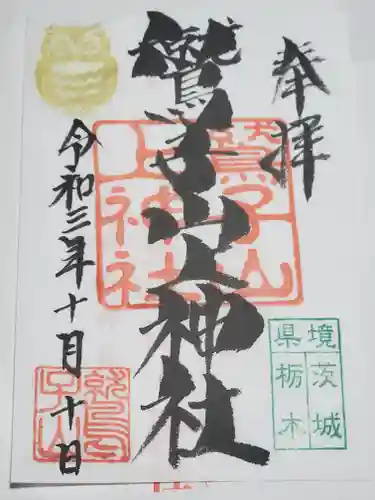 奉拝
鷲子山上神社
令和三年十月十日
鷲子山
上神社
境茨城
県栃木
鷲
子山